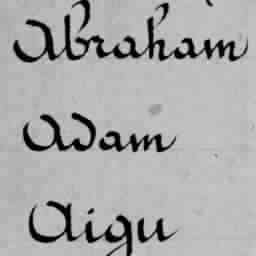 Abraham
Adam
Aigu